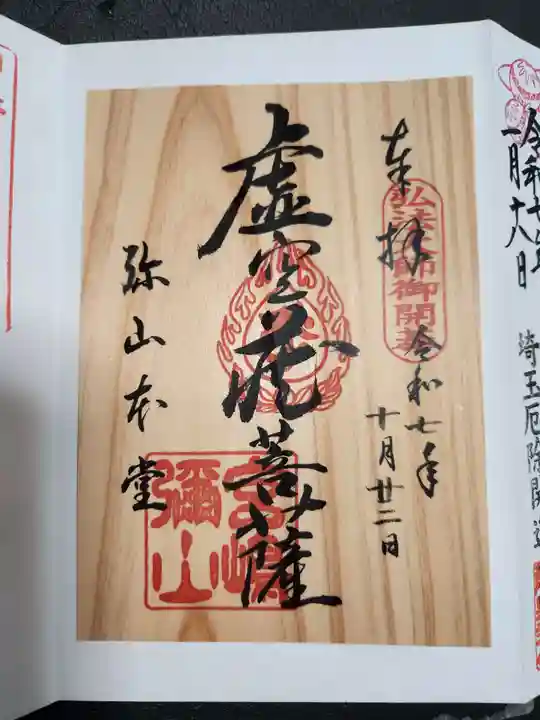 令和七年
一月十八日
埼玉厄除開運
奉拝
弘法大師御開基
令和七年
十月廿二日
虚空蔵菩薩
弥山本堂
宮嶋
彌山